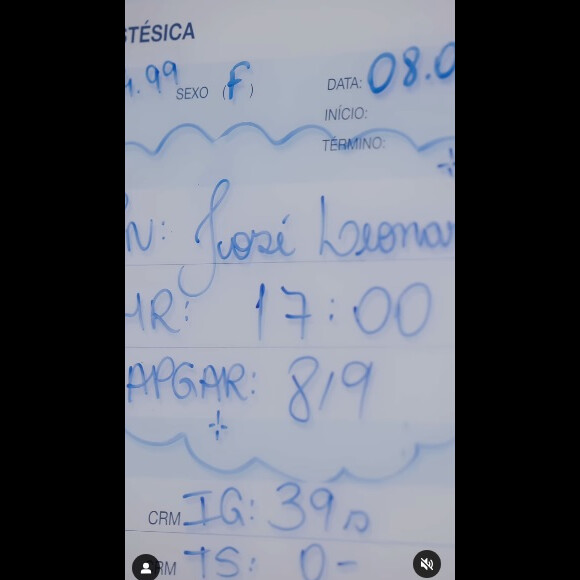 STÉSICA
.99 SEXO (F) DATA: 08.0
INÍCIO:
TÉRMINO:
N: José Leonar
HR: 17:00
APGAR: 8/9
CRM IG: 39s
RM TS: O-